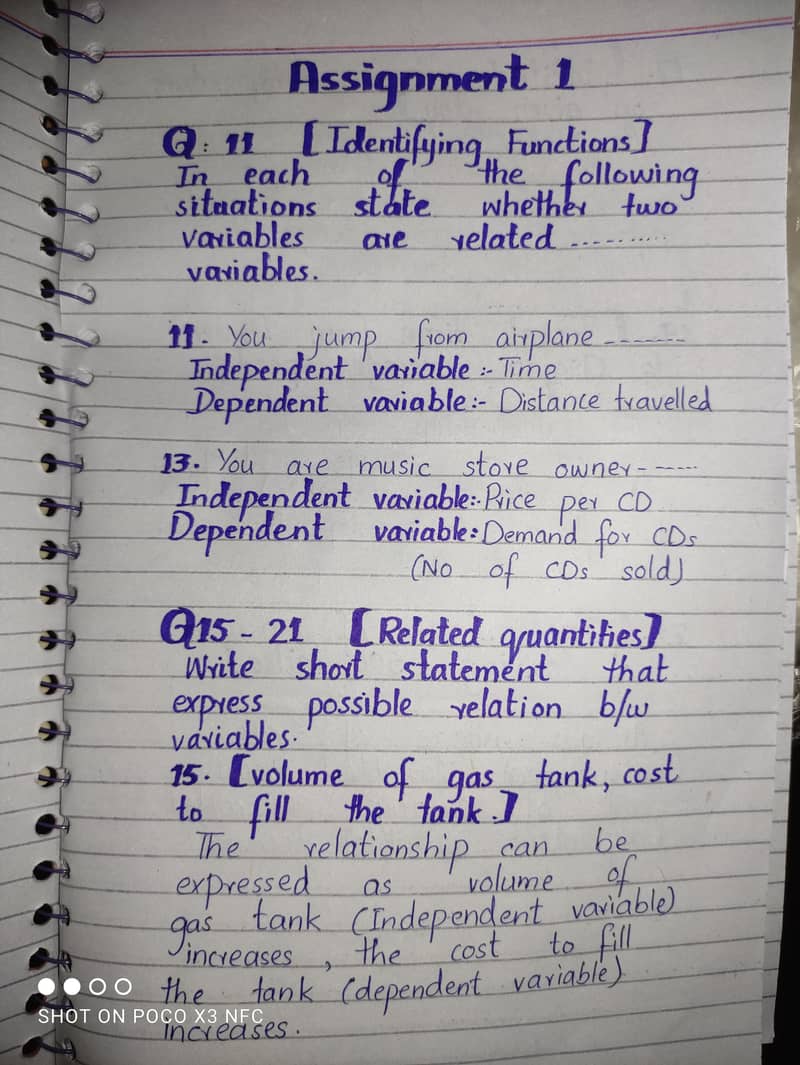 Assignment 1
Q: 11 [Identifying Functions]
In each of the following
situations state whether two
variables are related ..........
variables.
11. You jump from airplane -------
Independent variable :- Time
Dependent variable:- Distance travelled
13. You are music store owner------
Independent variable:- Price per CD
Dependent variable: Demand for CDs
(No of CDs sold)
Q15 - 21 [Related quantities]
Write short statement that
express possible relation b/w
variables.
15. [volume of gas tank, cost
to fill the tank.]
The relationship can be
expressed as volume of
gas tank (Independent variable)
increases, the cost to fill
the tank (dependent variable)
increases.
SHOT ON POCO X3 NFC